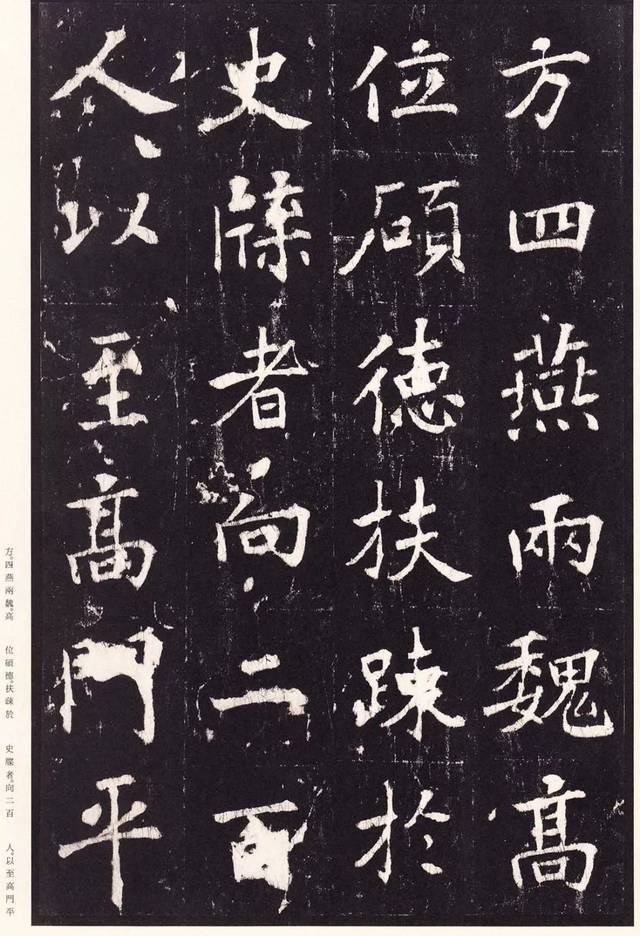 方四燕兩魏高
位碩德扶踈於
史牒者向二百
人以至高門平
方。四燕兩魏。高 位碩德。扶疎於 史牒者。向二百 人。以至高門平